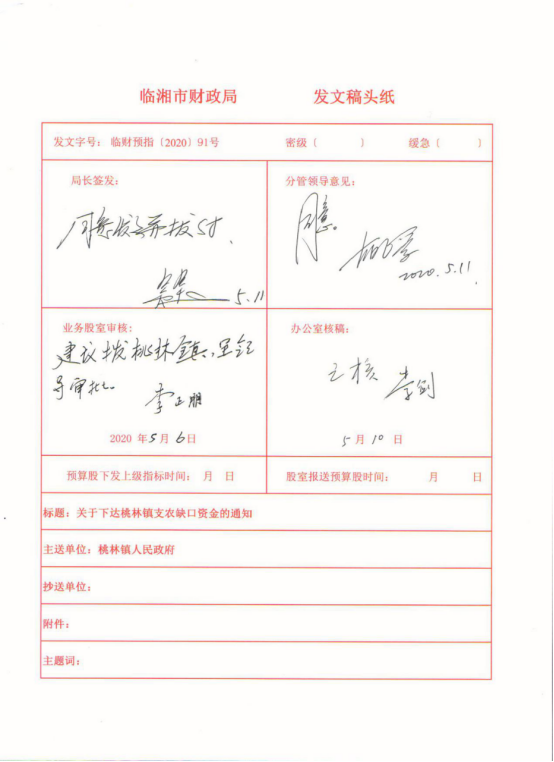 临湘市财政局 发文稿头纸
发文字号：临财预指〔2020〕91号 密级（ ） 缓急（ ）
局长签发：
同意发文并拨付。
5.11
分管领导意见：
同意。
2020.5.11.
业务股室审核:
建议拨桃林镇，呈领
导审批。
李正明
2020 年5月6日
办公室核稿：
已核 李剑
5月10日
预算股下发上级指标时间： 月 日 股室报送预算股时间： 月 日
标题：关于下达桃林镇支农缺口资金的通知
主送单位：桃林镇人民政府
抄送单位：
附件：
主题词：